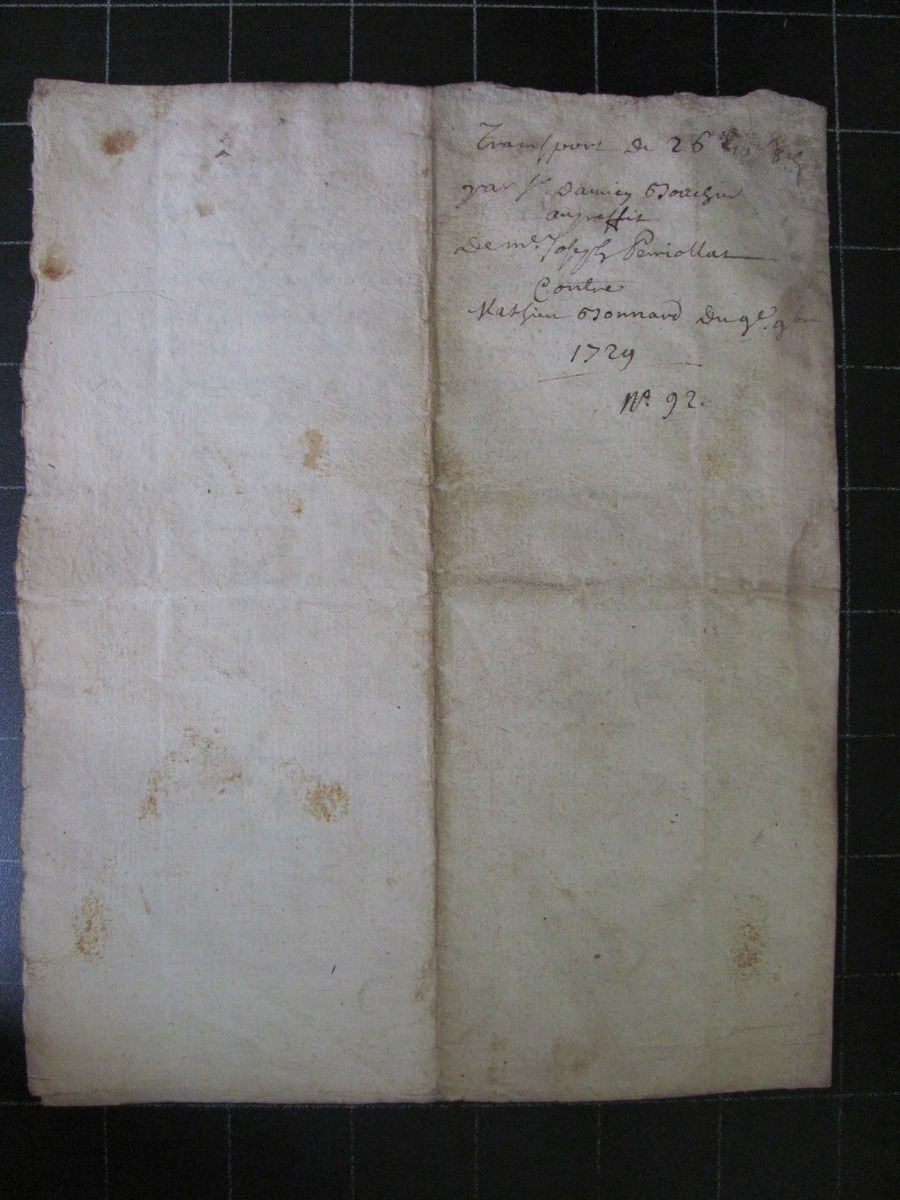 Transport de 26
par Sr. Damien Bouchie
au proffit
De me. Joseph Perriollat
Contre
Mathieu Bonnard Du 9e. 9bre
1729
No. 92.